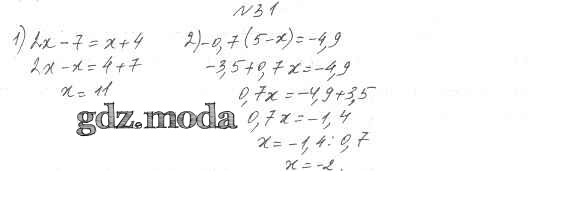 №31
1) 2x - 7 = x + 4
2x - x = 4 + 7
x = 11
2) -0,7(5-x) = -4,9
-3,5 + 0,7x = -4,9
0,7x = -4,9 + 3,5
0,7x = -1,4
x = -1,4 : 0,7
x = -2.
gdz.moda